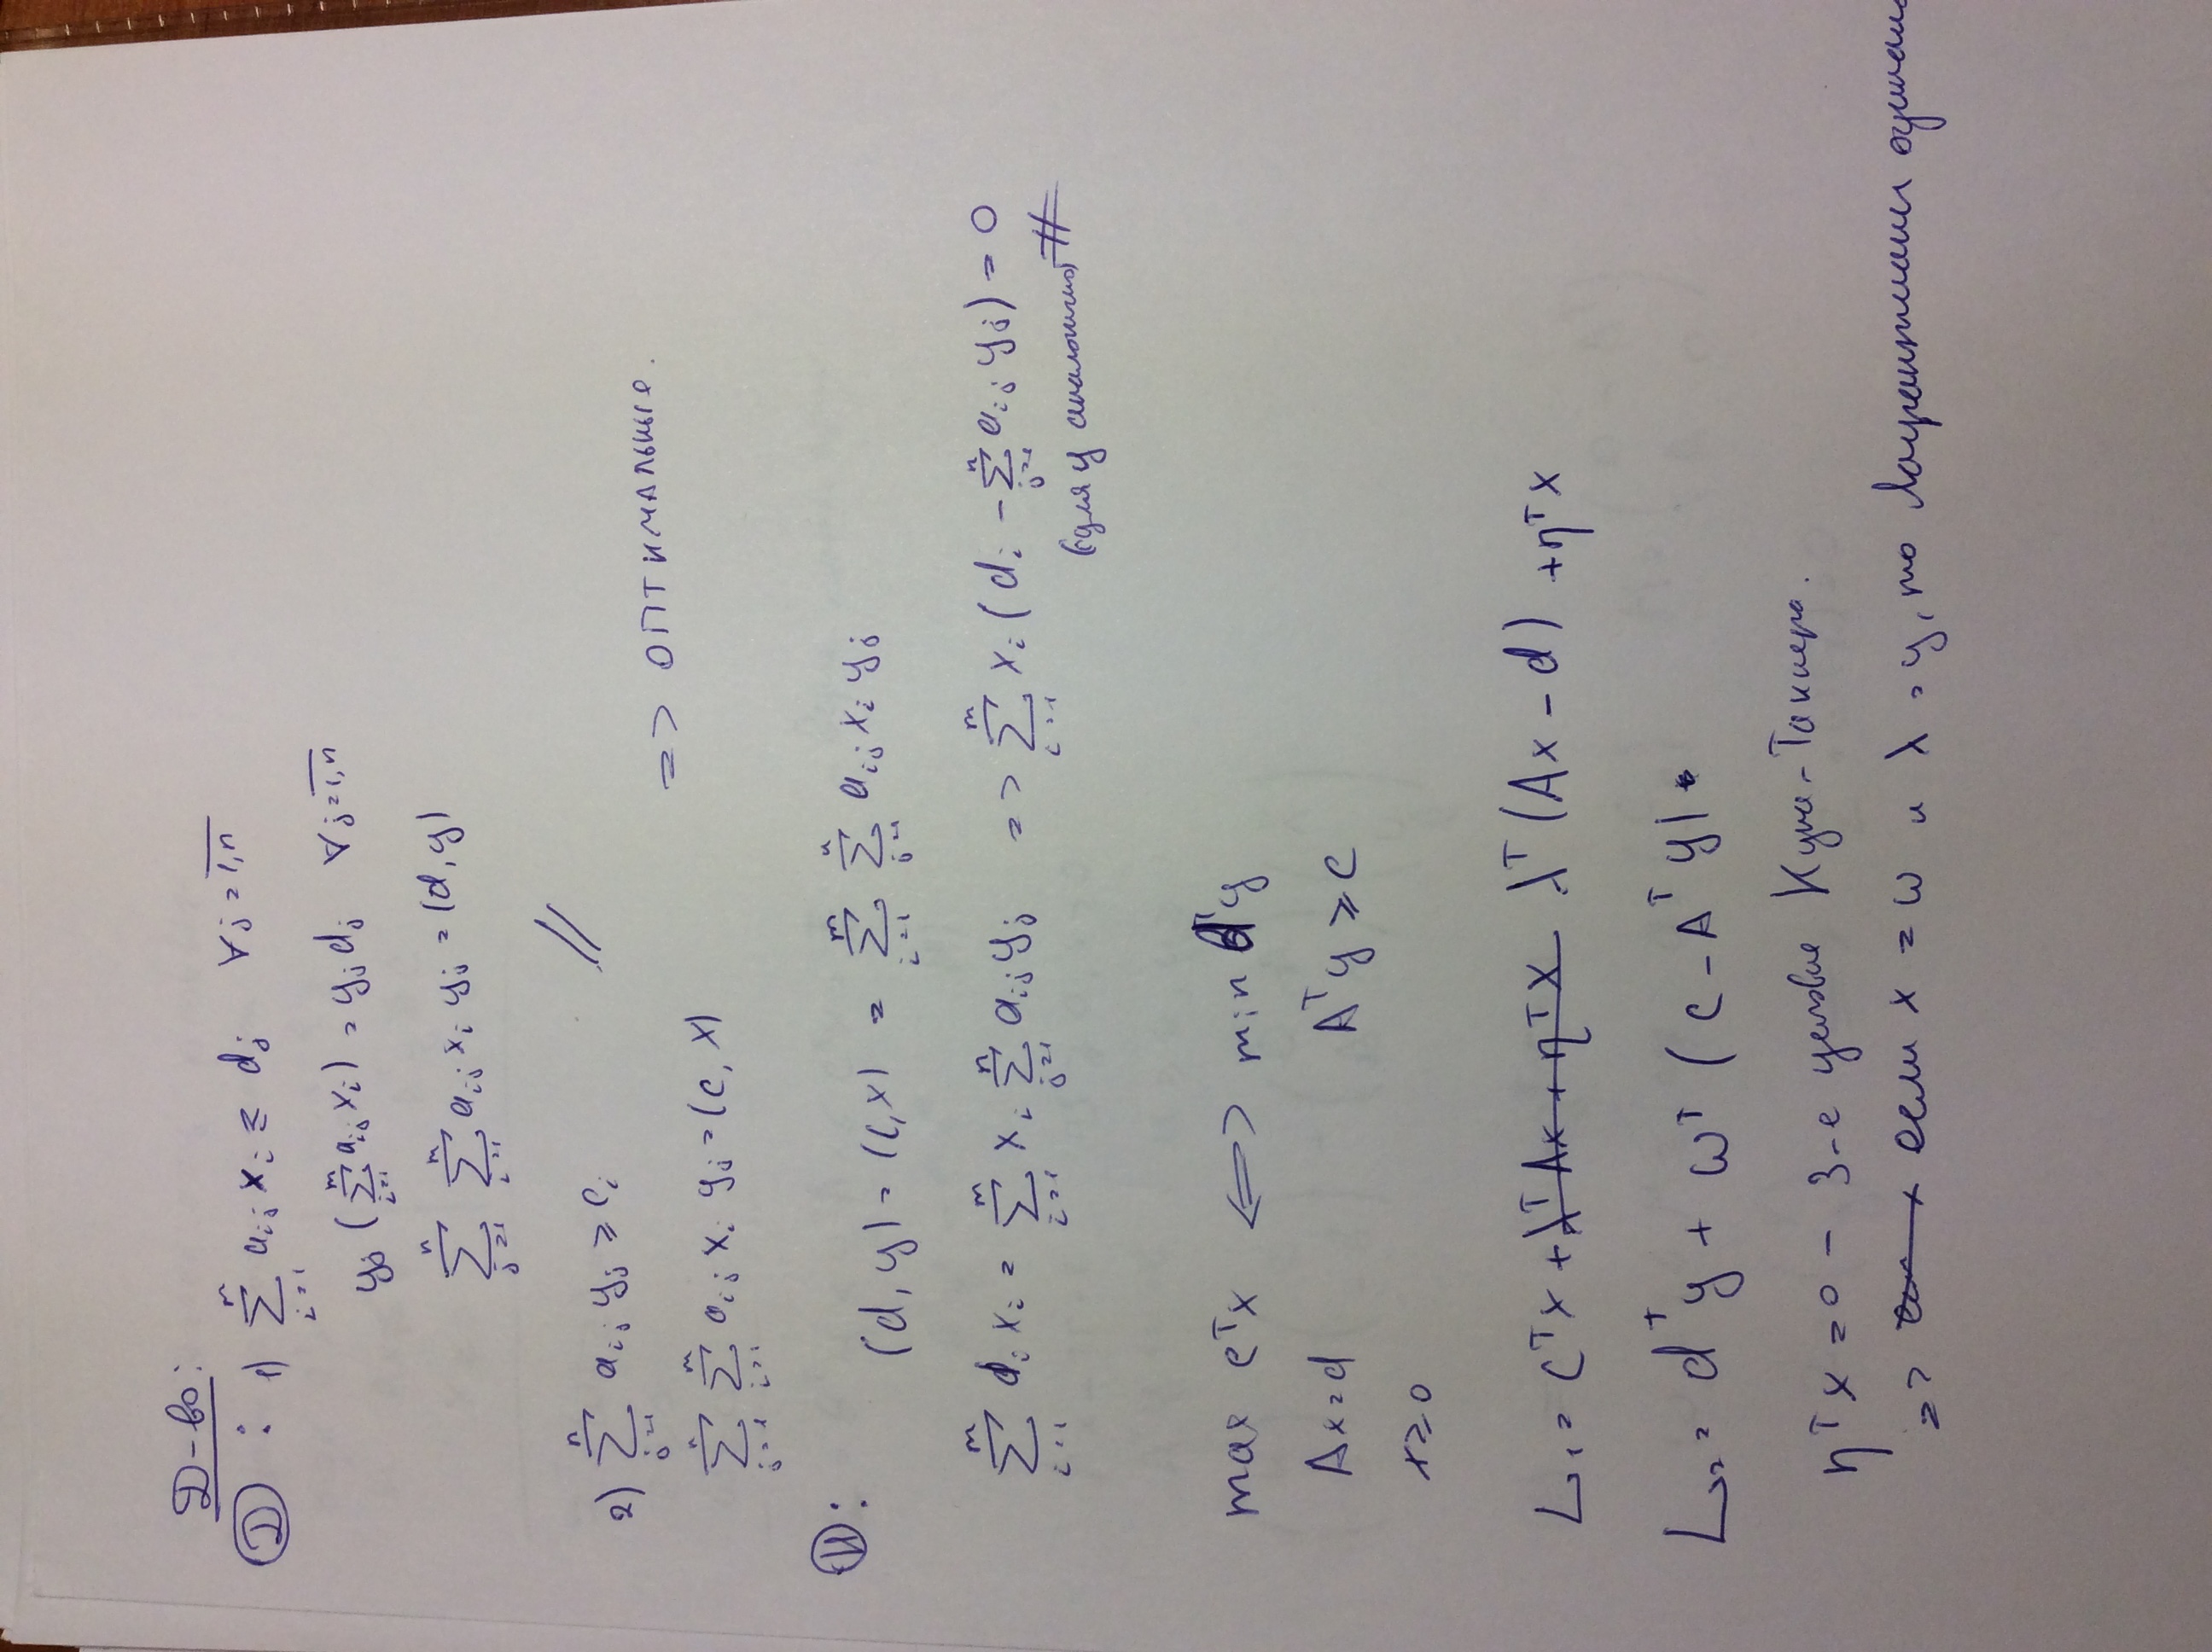 Д-во:
Д : 1) ∑_{i=1}^{n} a_{ij} x_i ≤ d_j ∀j = \overline{1,n}
y_j (∑_{i=1}^{m} a_{ij} x_i) = y_j d_j ∀j = \overline{1,n}
∑_{j=1}^{n} ∑_{i=1}^{m} a_{ij} x_i y_j = (d, y)
//
2) ∑_{j=1}^{n} a_{ij} y_j ≥ c_i
=> оптимальные.
∑_{j=1}^{n} ∑_{i=1}^{m} a_{ij} x_i y_j = (c, x)
Н:
(d, y) = (c, x) = ∑_{i=1}^{m} ∑_{j=1}^{n} a_{ij} x_i y_j
∑_{i=1}^{m} d_i x_i = ∑_{i=1}^{m} x_i ∑_{j=1}^{n} a_{ij} y_j => ∑_{i=1}^{m} x_i (d_i - ∑_{j=1}^{n} a_{ij} y_j) = 0
(для y аналогично) #
max c^T x <=> min d^T y
Ax = d A^T y ≥ c
x ≥ 0
L_1 = c^T x + λ^T Ax + η^T x λ^T (Ax - d) + η^T x
L_2 = d^T y + ω^T (c - A^T y)
η^T x = 0 - 3-е условие Куна-Таккера.
=> если x = ω и λ = y, то лагранжианы